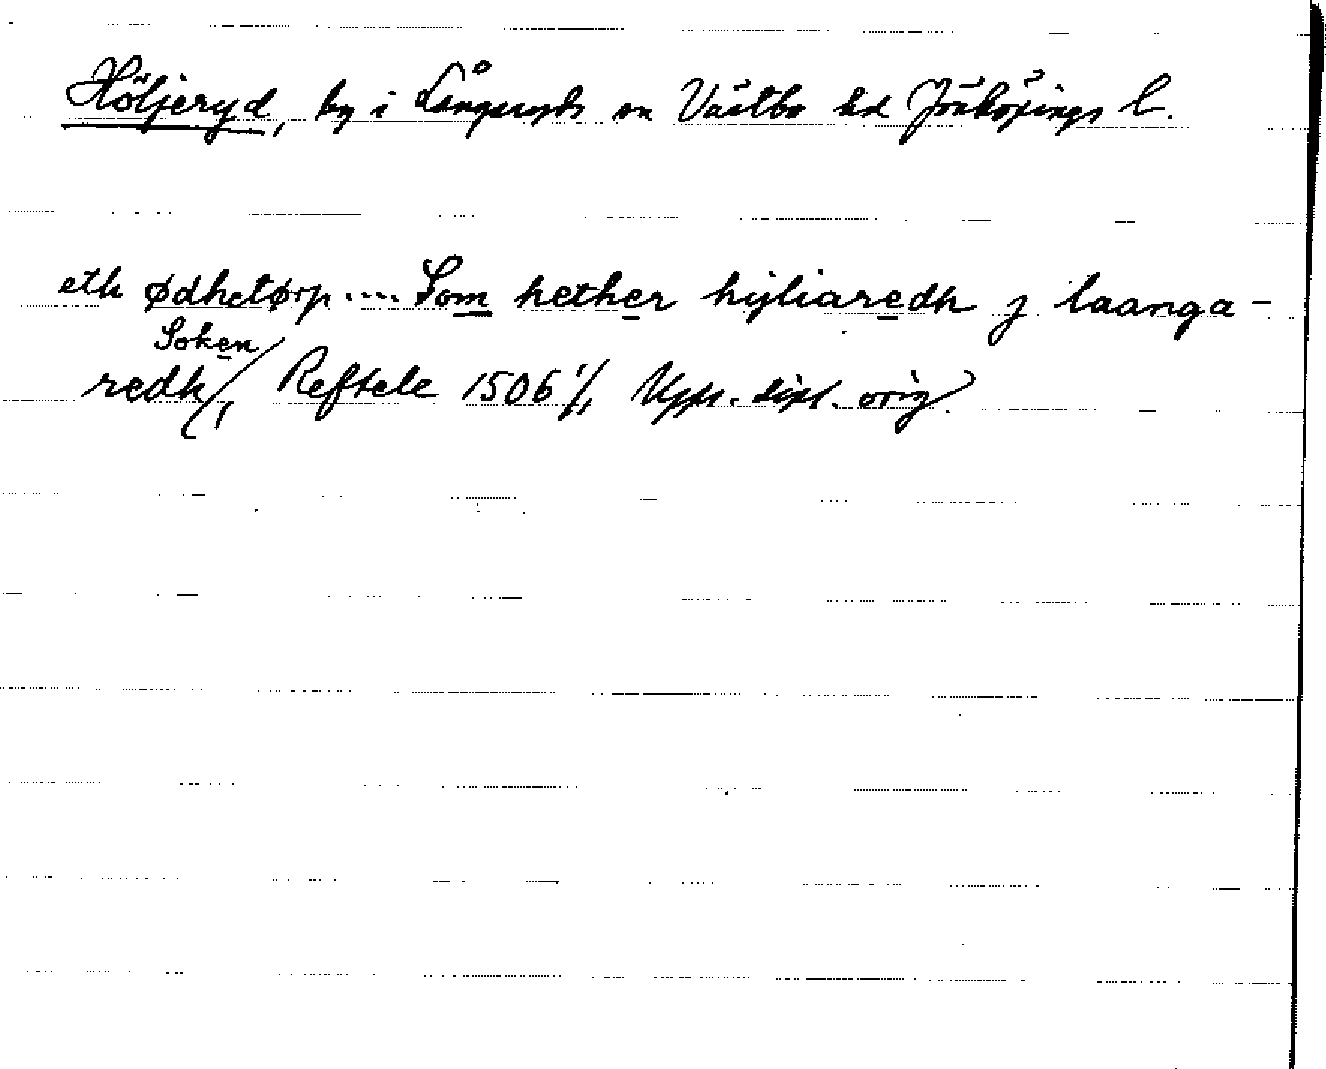 Höljeryd, by i Långaryds sn Västbo hd Jönköpings l.
eth ødhetørp .... Som hether hyliaredh j laanga-
Soken
redh/, Reftele 1506 1/1, Upps. dipl. orig.